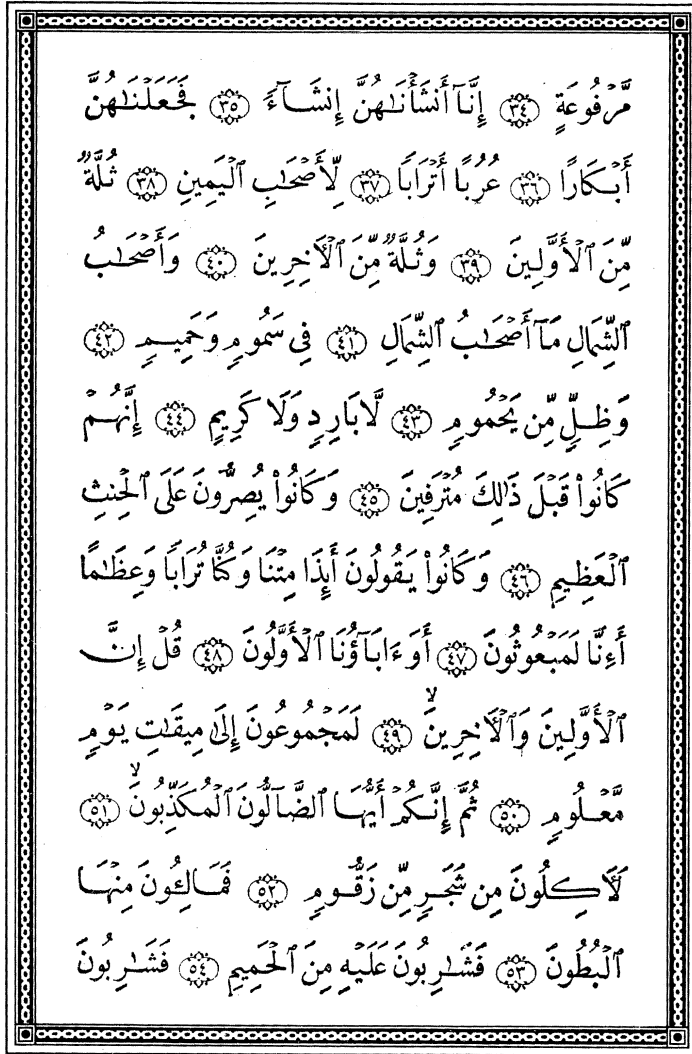 مَّرْفُوعَةٍ ٣٤ إِنَّآ أَنشَأْنَٰهُنَّ إِنشَآءً ٣٥ فَجَعَلْنَٰهُنَّ
أَبْكَارًا ٣٦ عُرُبًا أَتْرَابًا ٣٧ لِّأَصْحَٰبِ ٱلْيَمِينِ ٣٨ ثُلَّةٌ
مِّنَ ٱلْأَوَّلِينَ ٣٩ وَثُلَّةٌ مِّنَ ٱلْءَاخِرِينَ ٤٠ وَأَصْحَٰبُ
ٱلشِّمَالِ مَآ أَصْحَٰبُ ٱلشِّمَالِ ٤١ فِي سَمُومٍ وَحَمِيمٍ ٤٢
وَظِلٍّ مِّن يَحْمُومٍ ٤٣ لَّا بَارِدٍ وَلَا كَرِيمٍ ٤٤ إِنَّهُمْ
كَانُوا۟ قَبْلَ ذَٰلِكَ مُتْرَفِينَ ٤٥ وَكَانُوا۟ يُصِرُّونَ عَلَى ٱلْحِنثِ
ٱلْعَظِيمِ ٤٦ وَكَانُوا۟ يَقُولُونَ أَئِذَا مِتْنَا وَكُنَّا تُرَابًا وَعِظَٰمًا
أَءِنَّا لَمَبْعُوثُونَ ٤٧ أَوَءَابَآؤُنَا ٱلْأَوَّلُونَ ٤٨ قُلْ إِنَّ
ٱلْأَوَّلِينَ وَٱلْءَاخِرِينَ ۙ ٤٩ لَمَجْمُوعُونَ إِلَىٰ مِيقَٰتِ يَوْمٍ
مَّعْلُومٍ ٥٠ ثُمَّ إِنَّكُمْ أَيُّهَا ٱلضَّآلُّونَ ٱلْمُكَذِّبُونَ ۙ ٥١
لَءَاكِلُونَ مِن شَجَرٍ مِّن زَقُّومٍ ٥٢ فَمَالِـُٔونَ مِنْهَا
ٱلْبُطُونَ ٥٣ فَشَٰرِبُونَ عَلَيْهِ مِنَ ٱلْحَمِيمِ ٥٤ فَشَٰرِبُونَ